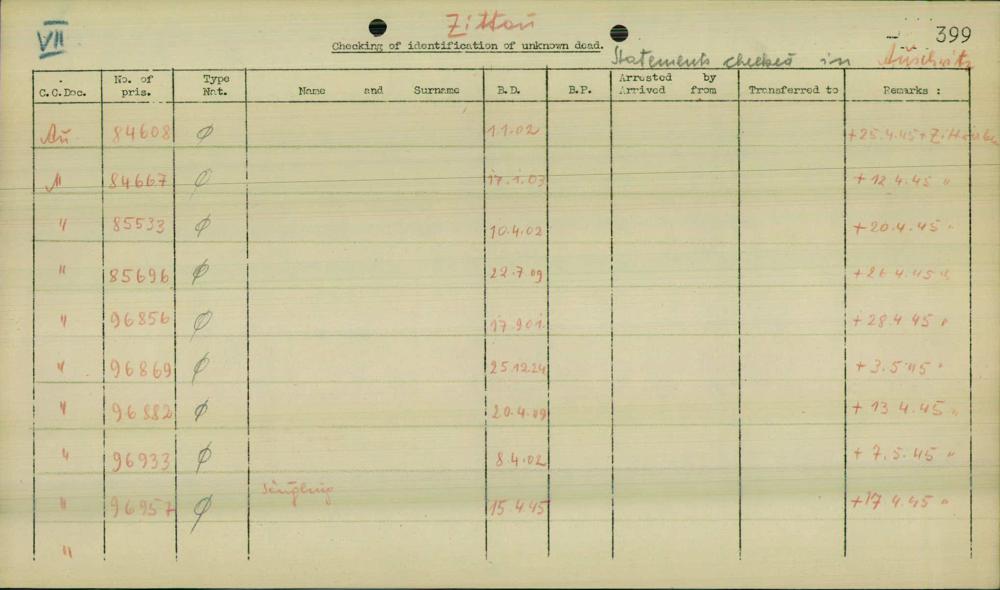 VII
Zittau
399
Checking of identification of unknown dead.
Statements checked in Auschwitz
C.C.Doc. No. of pris. Type Nat. Name and Surname B.D. B.P. Arrested by Arrived from Transferred to Remarks :
Au. 84608 ø 1.1.02 +25.4.45 + Zittau
" 84667 ø 17.1.03 + 12 4.45 "
" 85533 ø 10.4.02 +20.4.45 "
" 85696 ø 22.7.09 +26 4.45 "
" 96856 ø 17.901 +28 4 45 "
" 96869 ø 25.12.24 + 3.5.45 "
" 96882 ø 20.4.09 + 13 4.45 "
" 96933 ø 8.4.02 + 7.5.45 "
" 96957 ø Säugling 15.4.45 +17 4.45 "
"